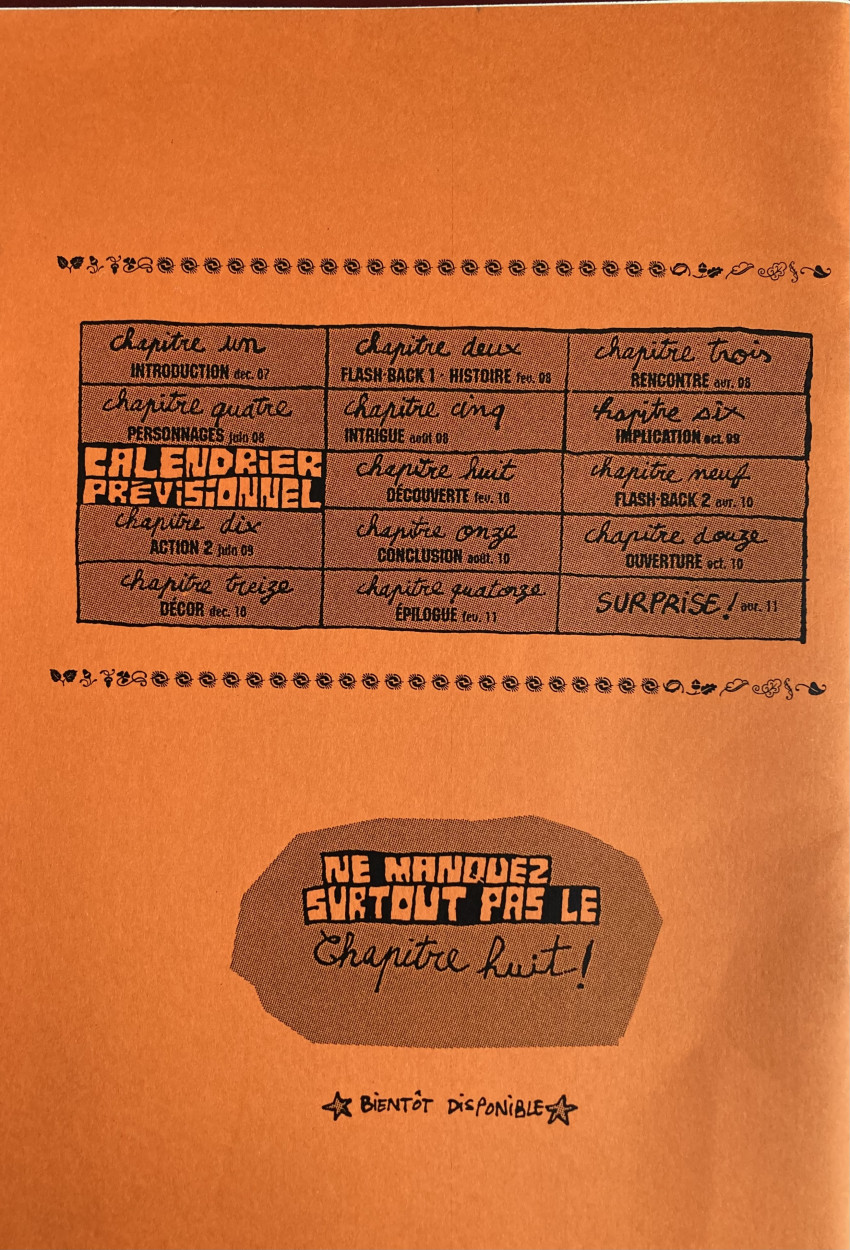 chapitre un
INTRODUCTION dec. 07
chapitre deux
FLASH-BACK 1 - HISTOIRE fev. 08
chapitre trois
RENCONTRE avr. 08
chapitre quatre
PERSONNAGES juin 08
chapitre cinq
INTRIGUE août 08
chapitre six
IMPLICATION oct. 09
CALENDRIER
PRÉVISIONNEL
chapitre huit
DÉCOUVERTE fev. 10
chapitre neuf
FLASH-BACK 2 avr. 10
chapitre dix
ACTION 2 juin 09
chapitre onze
CONCLUSION août. 10
chapitre douze
OUVERTURE oct. 10
chapitre treize
DÉCOR dec. 10
chapitre quatorze
ÉPILOGUE fev. 11
SURPRISE! avr. 11
NE MANQUEZ
SURTOUT PAS LE
Chapitre huit!
BIENTÔT DISPONIBLE